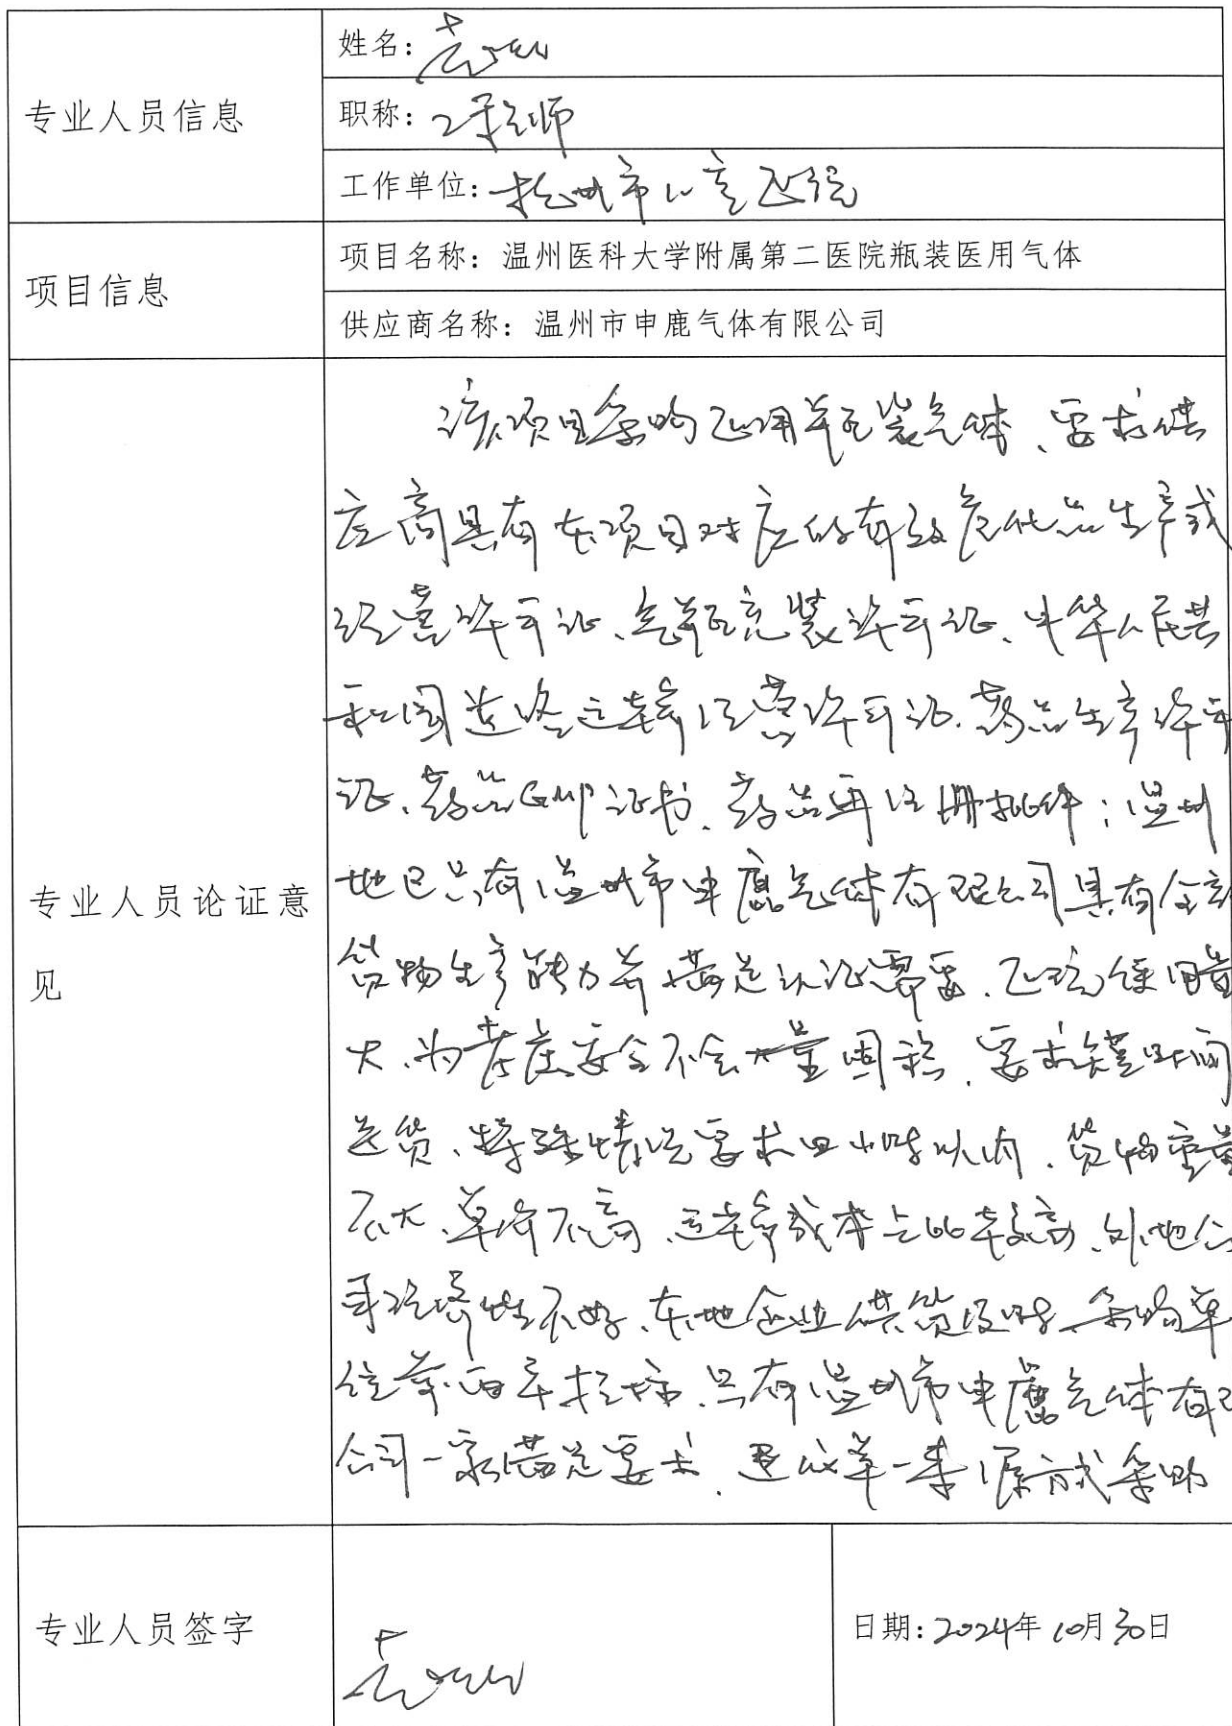 专业人员信息
姓名：
职称：工程师
工作单位：杭州市儿童医院
项目信息
项目名称：温州医科大学附属第二医院瓶装医用气体
供应商名称：温州市申鹿气体有限公司
专业人员论证意
见
该项目采购医用瓶装气体、要求供
应商具有本项目对应的有效危化品生产或
经营许可证、气瓶充装许可证、中华人民共
和国道路运输经营许可证、药品生产许可
证、药品GMP证书、药品再注册批件；温州
地区只有温州市申鹿气体有限公司具有全部
货物生产能力并满足认证需要、医院使用量
大、为存在安全不会大量囤积、要求短时间
送货、特殊情况要求四小时以内、货物重量
不大、单价不高、运输成本占比较高、外地公
司经济性不好、本地企业供货及时、采购单
位前面寻找,只有温州市申鹿气体有限
公司一家满足要求、建议单一来源方式采购
专业人员签字
日期：2024年10月30日